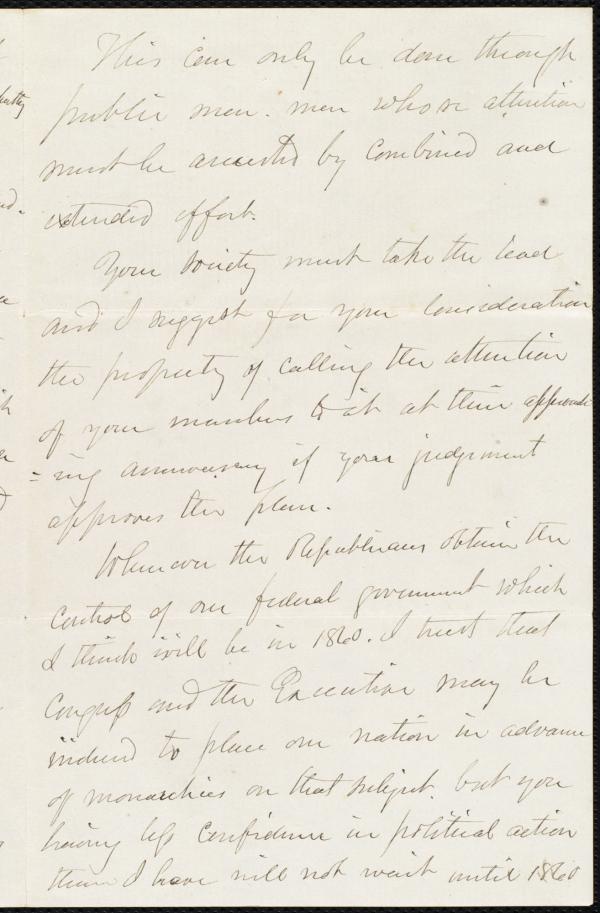 This can only be done through
public men. men whose attention
must be arrested by combined and
extended effort.
Your society must take the lead
and I suggest for your consideration
the propriety of calling the attention
of your members to it at their approach
=ing anniversary if your judgment
approves the plan.
Whenever the Republicans obtain the
control of our federal government which
I think will be in 1860. I trust that
Congress and the Executive may be
induced to place our nation in advance
of monarchies on that subject. but you
having less confidence in political action
than I have will not wait until 1860